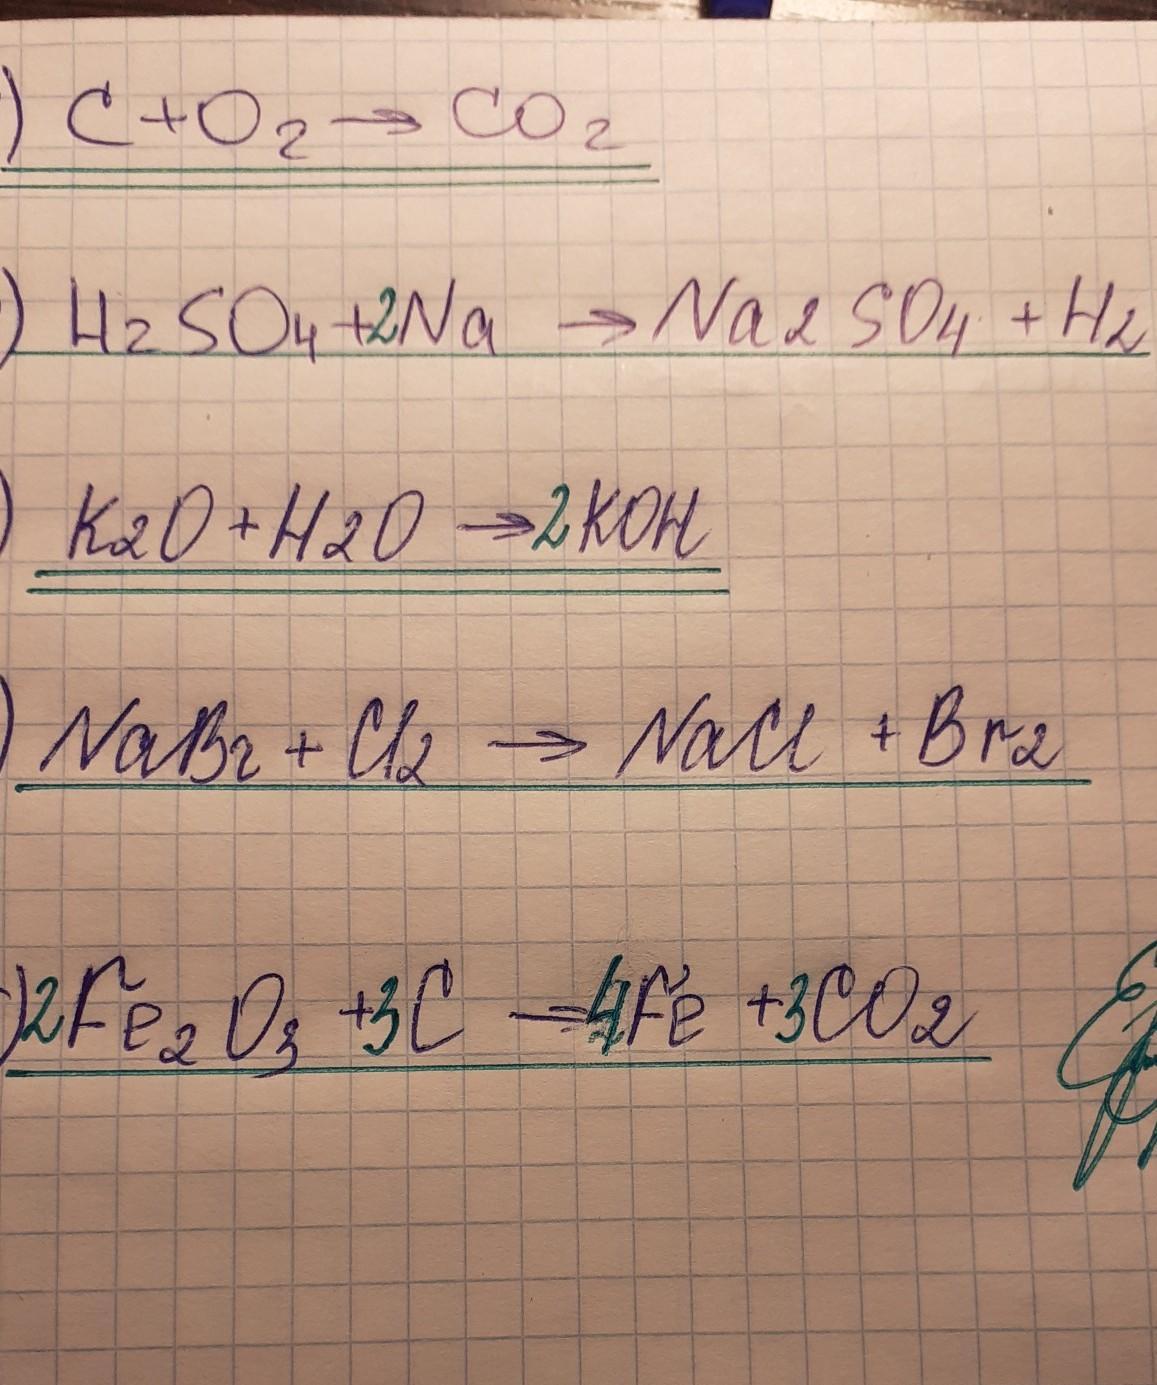 ) C + O₂ → CO₂
) H₂SO₄ + 2Na → Na₂SO₄ + H₂
) K₂O + H₂O → 2KOH
) NaBr + Cl₂ → NaCl + Br₂
) 2Fe₂O₃ + 3C → 4Fe + 3CO₂